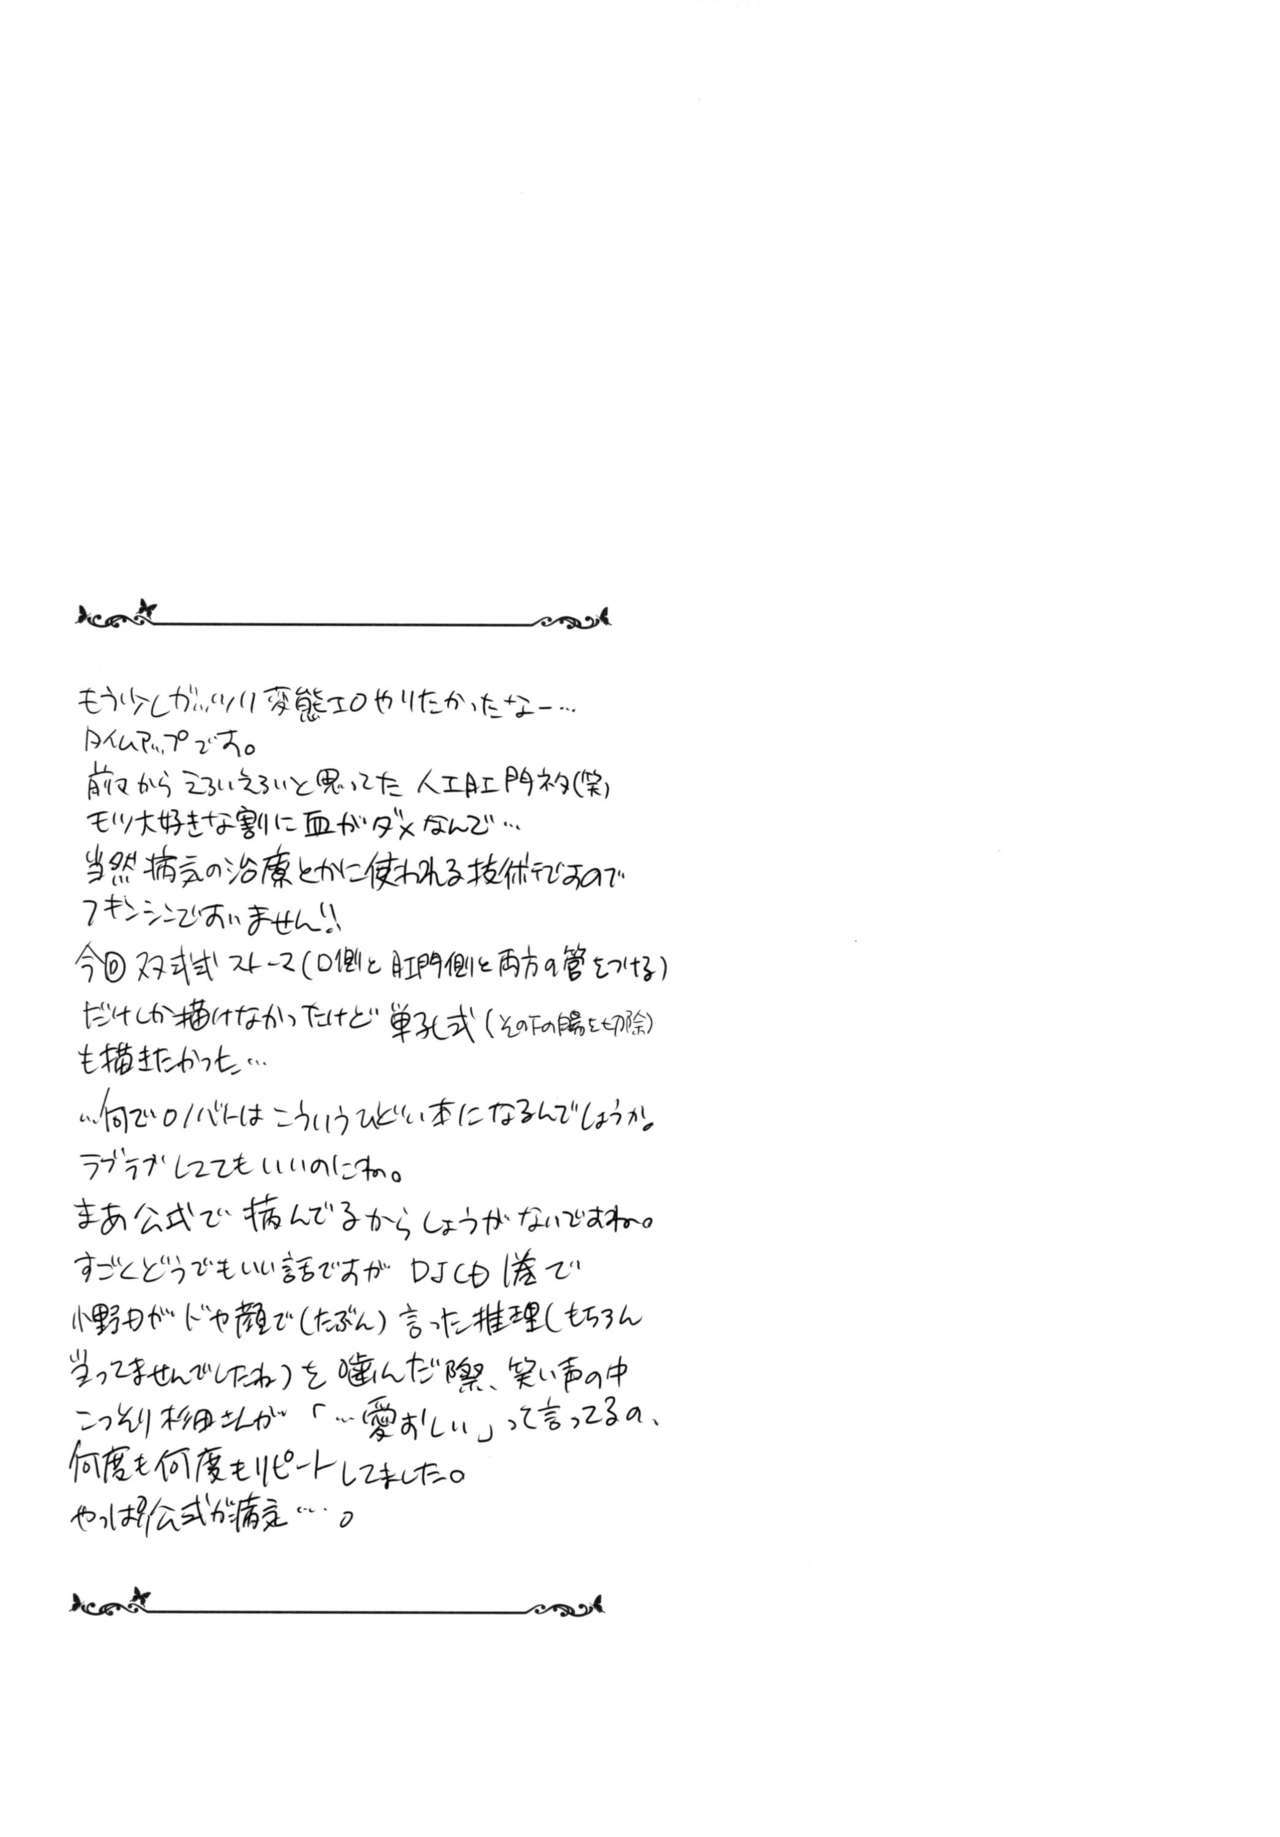 もう少しガッツリ変態エロやりたかったなー…
タイムアップです。
前々からえろいえろいと思ってた人工肛門ネタ(笑)
モツ大好きな割に血がダメなんで…
当然病気の治療とかに使われる技術ですので
フキンシンですいません!!
今回双孔式ストーマ(口側と肛門側と両方の管をつける)
だけしか描けなかったけど単孔式(その下の腸を切除)
も描きたかった…
…何でロノバトはこういうひどい本になるんでしょうか。
ラブラブしててもいいのにね。
まあ公式で病んでるからしょうがないですね。
すごくどうでもいい話ですが DJCD1巻で
小野Dがドヤ顔で(たぶん)言った推理(もちろん
当ってませんでしたね)を噛んだ際、笑い声の中
こっそり杉田さんが「…愛おしい」って言ってるの、
何度も何度もリピートしてました。
やっぱり公式が病定…。